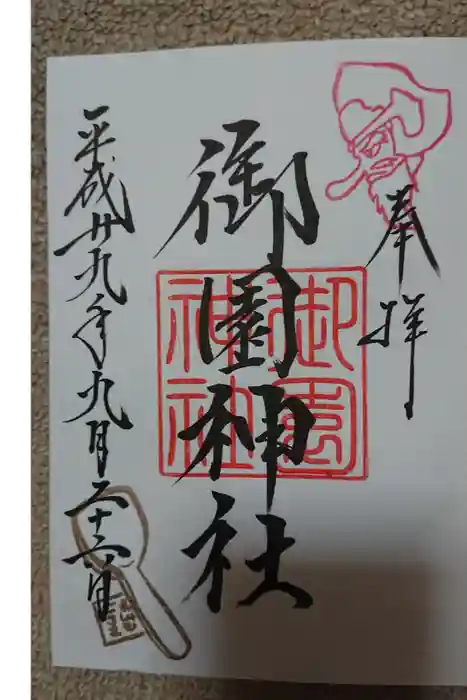 奉拝
御園神社
御園
神社
平成廿九年九月二十六日